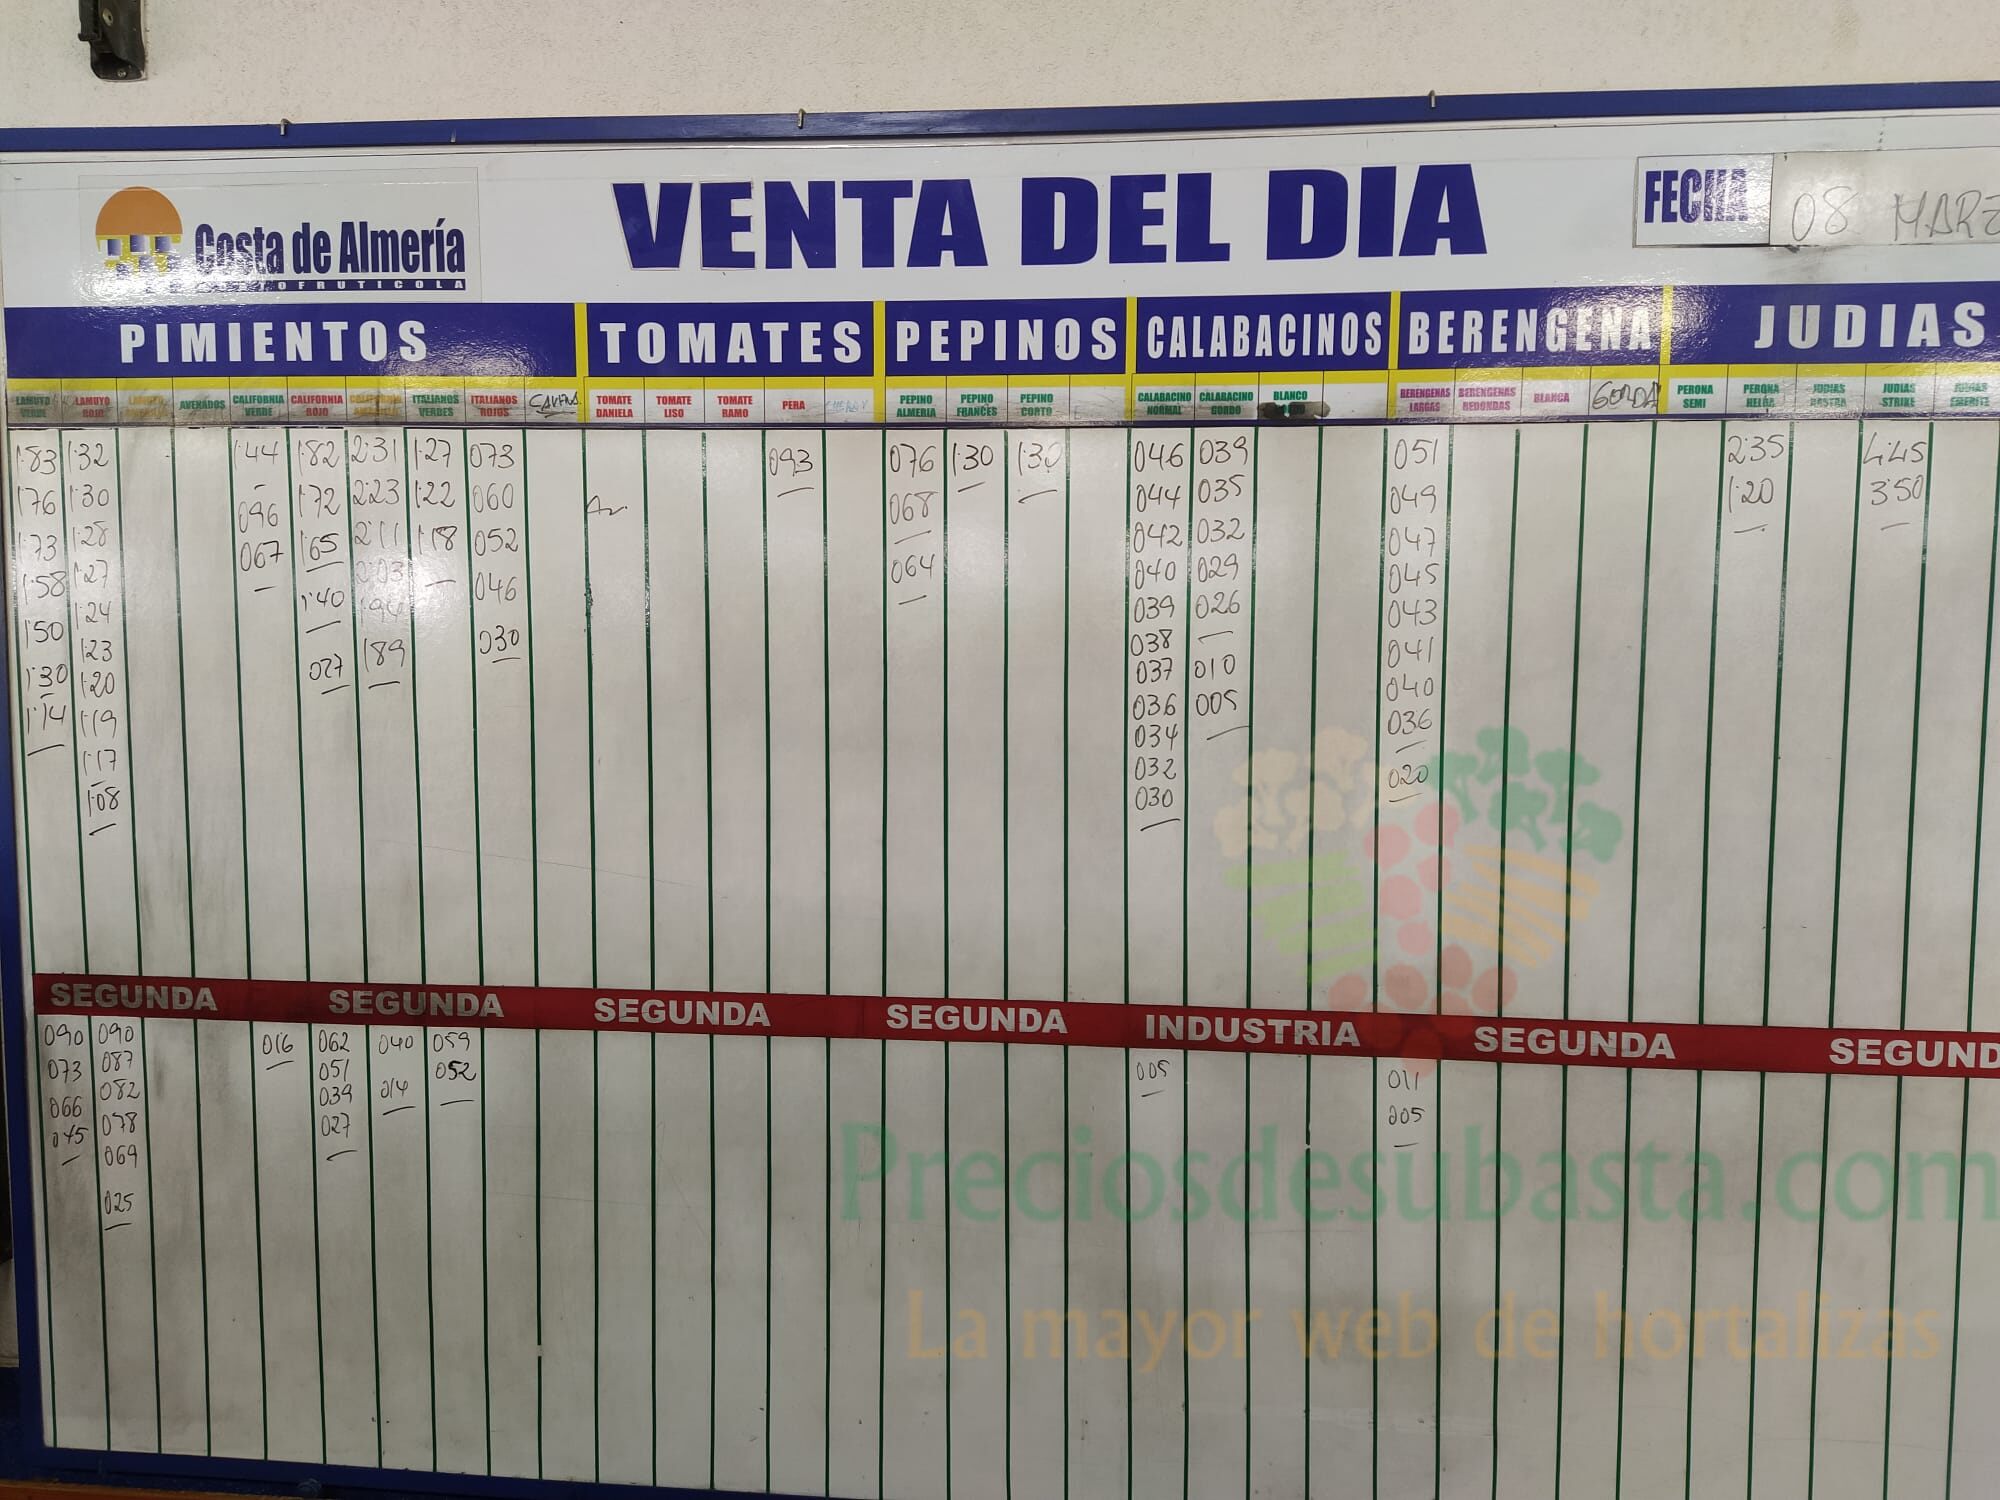 Costa de Almería
HORTOFRUTICOLA
VENTA DEL DIA
FECHA 08 MARZ
PIMIENTOS TOMATES PEPINOS CALABACINOS BERENGENA JUDIAS
LAMUYO VERDE LAMUYO ROJO LAMUYO AMARILLO AVENADOS CALIFORNIA VERDE CALIFORNIA ROJO CALIFORNIA AMARILLO ITALIANOS VERDES ITALIANOS ROJOS TOMATE DANIELA TOMATE LISO TOMATE RAMO PERA PEPINO ALMERIA PEPINO FRANCES PEPINO CORTO CALABACINO NORMAL CALABACINO GORDO BLANCO BERENGENAS LARGAS BERENGENAS REDONDAS BLANCA GORDA PERONA SEMI PERONA HELDA JUDIAS RASTRA JUDIAS STRIKE JUDIAS EMERITE
1'83 1'32 1'44 1'82 2'31 1'27 073 093 076 1'30 1'30 046 039 051 2'35 4'45
1'76 1'30 096 1'72 2'23 1'22 060 Av. 068 044 035 049 1'20 3'50
1'73 1'28 067 1'65 2'11 1'18 052 064 042 032 047
1'58 1'27 1'40 2'03 046 040 029 045
1'50 1'24 027 1'94 030 039 026 043
1'30 1'23 1'89 038 010 041
1'14 1'20 037 005 040
1'19 036 036
1'17 034 020
1'08 032
030
SEGUNDA SEGUNDA SEGUNDA SEGUNDA INDUSTRIA SEGUNDA SEGUND
090 090 016 062 040 059 005 011
073 087 051 014 052 005
066 082 039
045 078 027
069
025
Preciosdesubasta.com
La mayor web de hortalizas